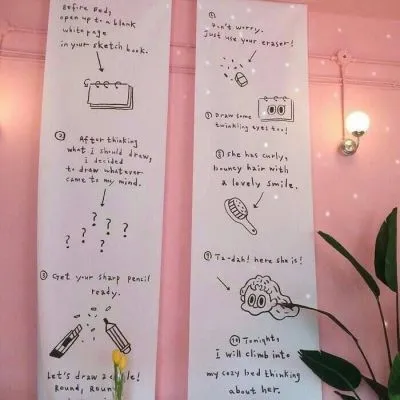 Before Bed,
open up to a blank
white page
in your sketch book.
②
After thinking
what I should draw,
i decided
to draw whatever
came to my mind.
? ? ? ? ?
③ Get your sharp pencil
ready.
Let's draw a
Round,
⑥
Don't worry.
Just use your eraser!
⑦ Draw some
twinkling eyes too!
⑧ she has curly,
bouncy hair with
a lovely smile.
⑨ Ta-dah! here she is!
⑩ Tonight,
i will climb into
my cozy bed thinking
about her.